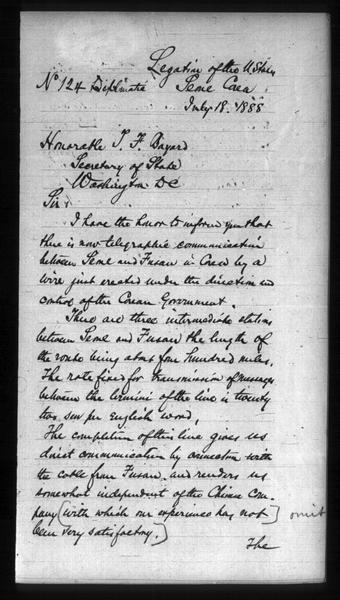 Legation of the U States
No 124 Diplomatic Seoul Corea
July 18. 1888
Honorable T F Bayard
Secretary of State
Washington DC
Sir
I have the honor to inform you that
there is now telegraphic communication
between Seoul and Fusan in Corea by a
wire just erected under the direction and
control of the Corean Government.
There are three intermediate stations
between Seoul and Fusan the length of
the route being about four hundred miles.
The rate fixed for transmission of messages
between the termini of the line is twenty
two sen per English word,
The completion of this line gives us
direct communication by connection with
the cable from Fusan, and renders us
somewhat independent of the Chinese Com-
pany [with which our experience has not] omit
been very satisfactory.]
The